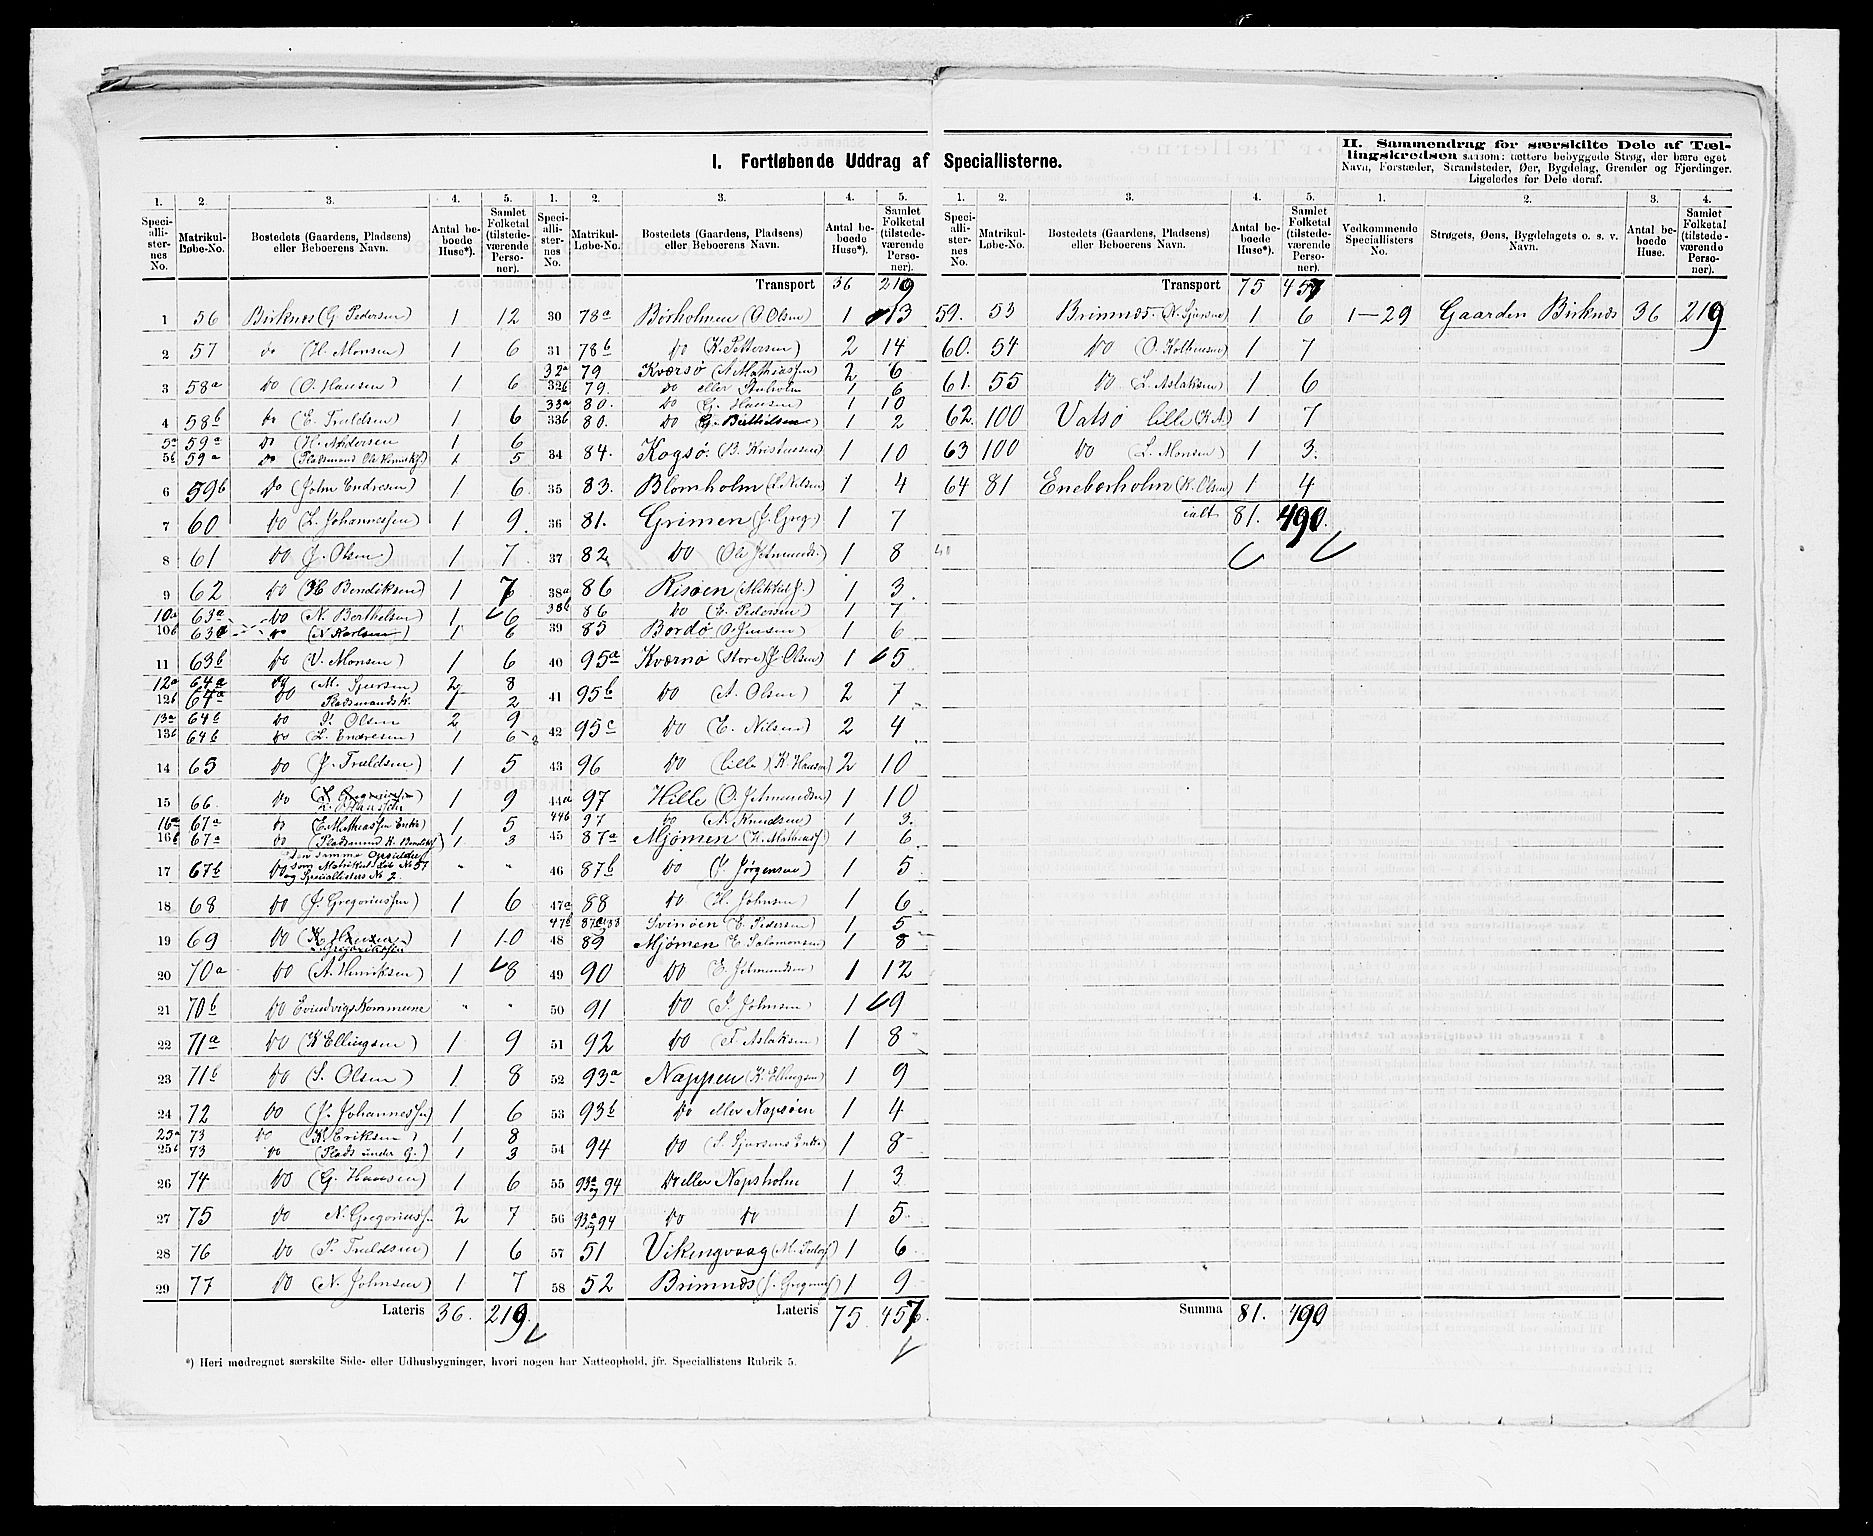 I. Fortløbende Uddrag af Speciallisterne.
II. Sammendrag for særskilte Dele af Tæl-
lingskredsen saasom: tættere bebyggede Strøg, der bære eget
Navn, Forstæder, Strandsteder, Øer, Bygdelag, Grender og Fjerdinger.
Ligeledes for Dele deraf.
1. 2 3. 4. 5.
Speciallisternes No. Matrikul-Løbe-No. Bostedets (Gaardens, Pladsens) eller Beboerens Navn. Antal beboede Huse*). Samlet Folketal (tilstedeværende Personer).
1 56 Birknes (G. Pedersen) 1 12
2 57 do (H. Monsen) 1 6
3 58a do (O. Hansen) 1 6
4 58b do (E. Truldsen) 1 6
5a 59a do (H. Andersen 1 6
5b 59a do (Pladsmand Ole) 1 5
6 59b do (John Endresen) 1 6
7 60 do (L. Johannessen) 1 9
8 61 do (J. Olsen) 1 7
9 62 do (H Bendiksen) 1 7
10a 63a do (N. Berthelsen) 1 6
10b 63a do (N Karlsen) 1 6
11 63b do (V. Monsen) 1 6
12a 64a do (M. Sjursen) 2 8
12b 64a do Pladsmandsk. 1 2
13a 64b do Olsen 2 9
13b 64b do (L. Endresen) 1 6
14 65 do (J. Truldsen) 1 5
15 66. do 1 9
16a 67a do (E. Mathiassen Enke) 1 5
16b 67a do (Pladsmand K. ) 1 3
17 67b do den samme Opsidder som Matrikul Løb No 57 og Speciallistens No 2. " "
18 68 do (J. Gregoriussen) 1 6
19 69 do 1 10
20 70a do (A. Henriksen) 1 8
21 70b do Evindvigs Kommune " "
22 71a do (K Ellingsen) 1 9
23 71b do (S. Olsen) 1 8
24 72 do (J. Johannessen) 1 6
25a 73 do (K Eriksen) 1 8
25b 73 do (Plads under G.) 1 3
26 74 do (G. Hansen) 1 6
27 75 do N. Gregoriussen 2 7
28 76 do (P. Truldsen) 1 6
29 77 do (N. Johnsen) 1 7
Lateris 36. 219.
1. 2. 3. 4. 5.
Speciallisternes No. Matrikul-Løbe-No. Bostedets (Gaardens, Pladsens) eller Beboerens Navn. Antal beboede Huse*). Samlet Folketal (tilstedeværende Personer).
Transport 36 219
30 78a Birkholmen (O Olsen) 1 13
31 78b do (K. Pettersen) 2 14
32a 79 Kværsø (A Mathiassen) 2 6
32b 79. do eller 1 6
33a 80. do (G. Hansen) 1 10
33b 80. do (G. Berthelsen) 1 2
34 84. Kogsø. (B. Kristensen) 1 10
35 83. Blomholm (L. Nilsen) 1 4
36 81. Grimen (J. Greg.) 1 7
37 82 do (Ole Jetmunds.) 1 8
38a 86 Risøen (Mikkel J.) 1 3
38b 86 do (E. Pedersen) 1 7
39 85 Bordø (O. Jensen) 1 6
40 95a Kværnø (Store) (J. Olsen) 1 5
41 95b do (A. Olsen) 2 7
42 95c do (E. Nilsen) 2 4
43 96 do (lille) (K. Hansen) 2 10
44a 97 Hille (O. Jetmundsen) 1 10
44b 97 do (A. Knudsen) 1 3.
45 87a Mjømen (H. Mathiass) 1 6
46 87b do (J. Jørgensen) 1 5
47a 88 do (H. Johnsen) 1 6
47b 87a og 88 Svinøen (E. Pedersen) 1 5
48 89 Mjømen (E. Salomonsen) 1 8
49 90 do (E. Jetmundsen) 1 12
50 91 do (S. Johnsen) 1 9
51 92 do (T. Aslaksen) 1 8
52 93a Nappen (K. Ellingsen) 1 9
53 93b do eller Napsøen 1 4
54 94 do (S. Sjursens Enke) 1 8
55 93a og 94 do eller Napsholm 1 3
56 93a og 94 do do 1 5
57 51 Vikingvaag (M. Peders) 1 6
58 52 Brimnes (J. Gregorius) 1 9
Lateris 75. 457.
1. 2. 3. 4. 5.
Speciallisternes No. Matrikul-Løbe-No. Bostedets (Gaardens, Pladsens) eller Beboerens Navn. Antal beboede Huse*). Samlet Folketal (tilstedeværende Personer).
Transport 75 457
59. 53 Brimnes (N. Sjursen) 1 6
60. 54 do (O. Kolbensen) 1 7
61. 55 do (L. Aslaksen) 1 6
62. 100 Vatsø lille (K A) 1 7
63 100 do (L. Monsen) 1 3.
64 81 Eneberholm (K. Olsen) 1 4
ialt 81. 490.
Summa 81. 490
1. 2. 3. 4.
Vedkommende Speciallisters No. Strøgets, Øens, Bygdelagets o. s. v. Navn. Antal beboede Huse. Samlet Folketal (tilstedeværende Personer).
1-29 Gaarden Birknes 36 219
*) Heri medregnet særskilte Side- eller Udhusbygninger, hvori nogen har Natteophold, jfr. Speciallistens Rubrik 5.